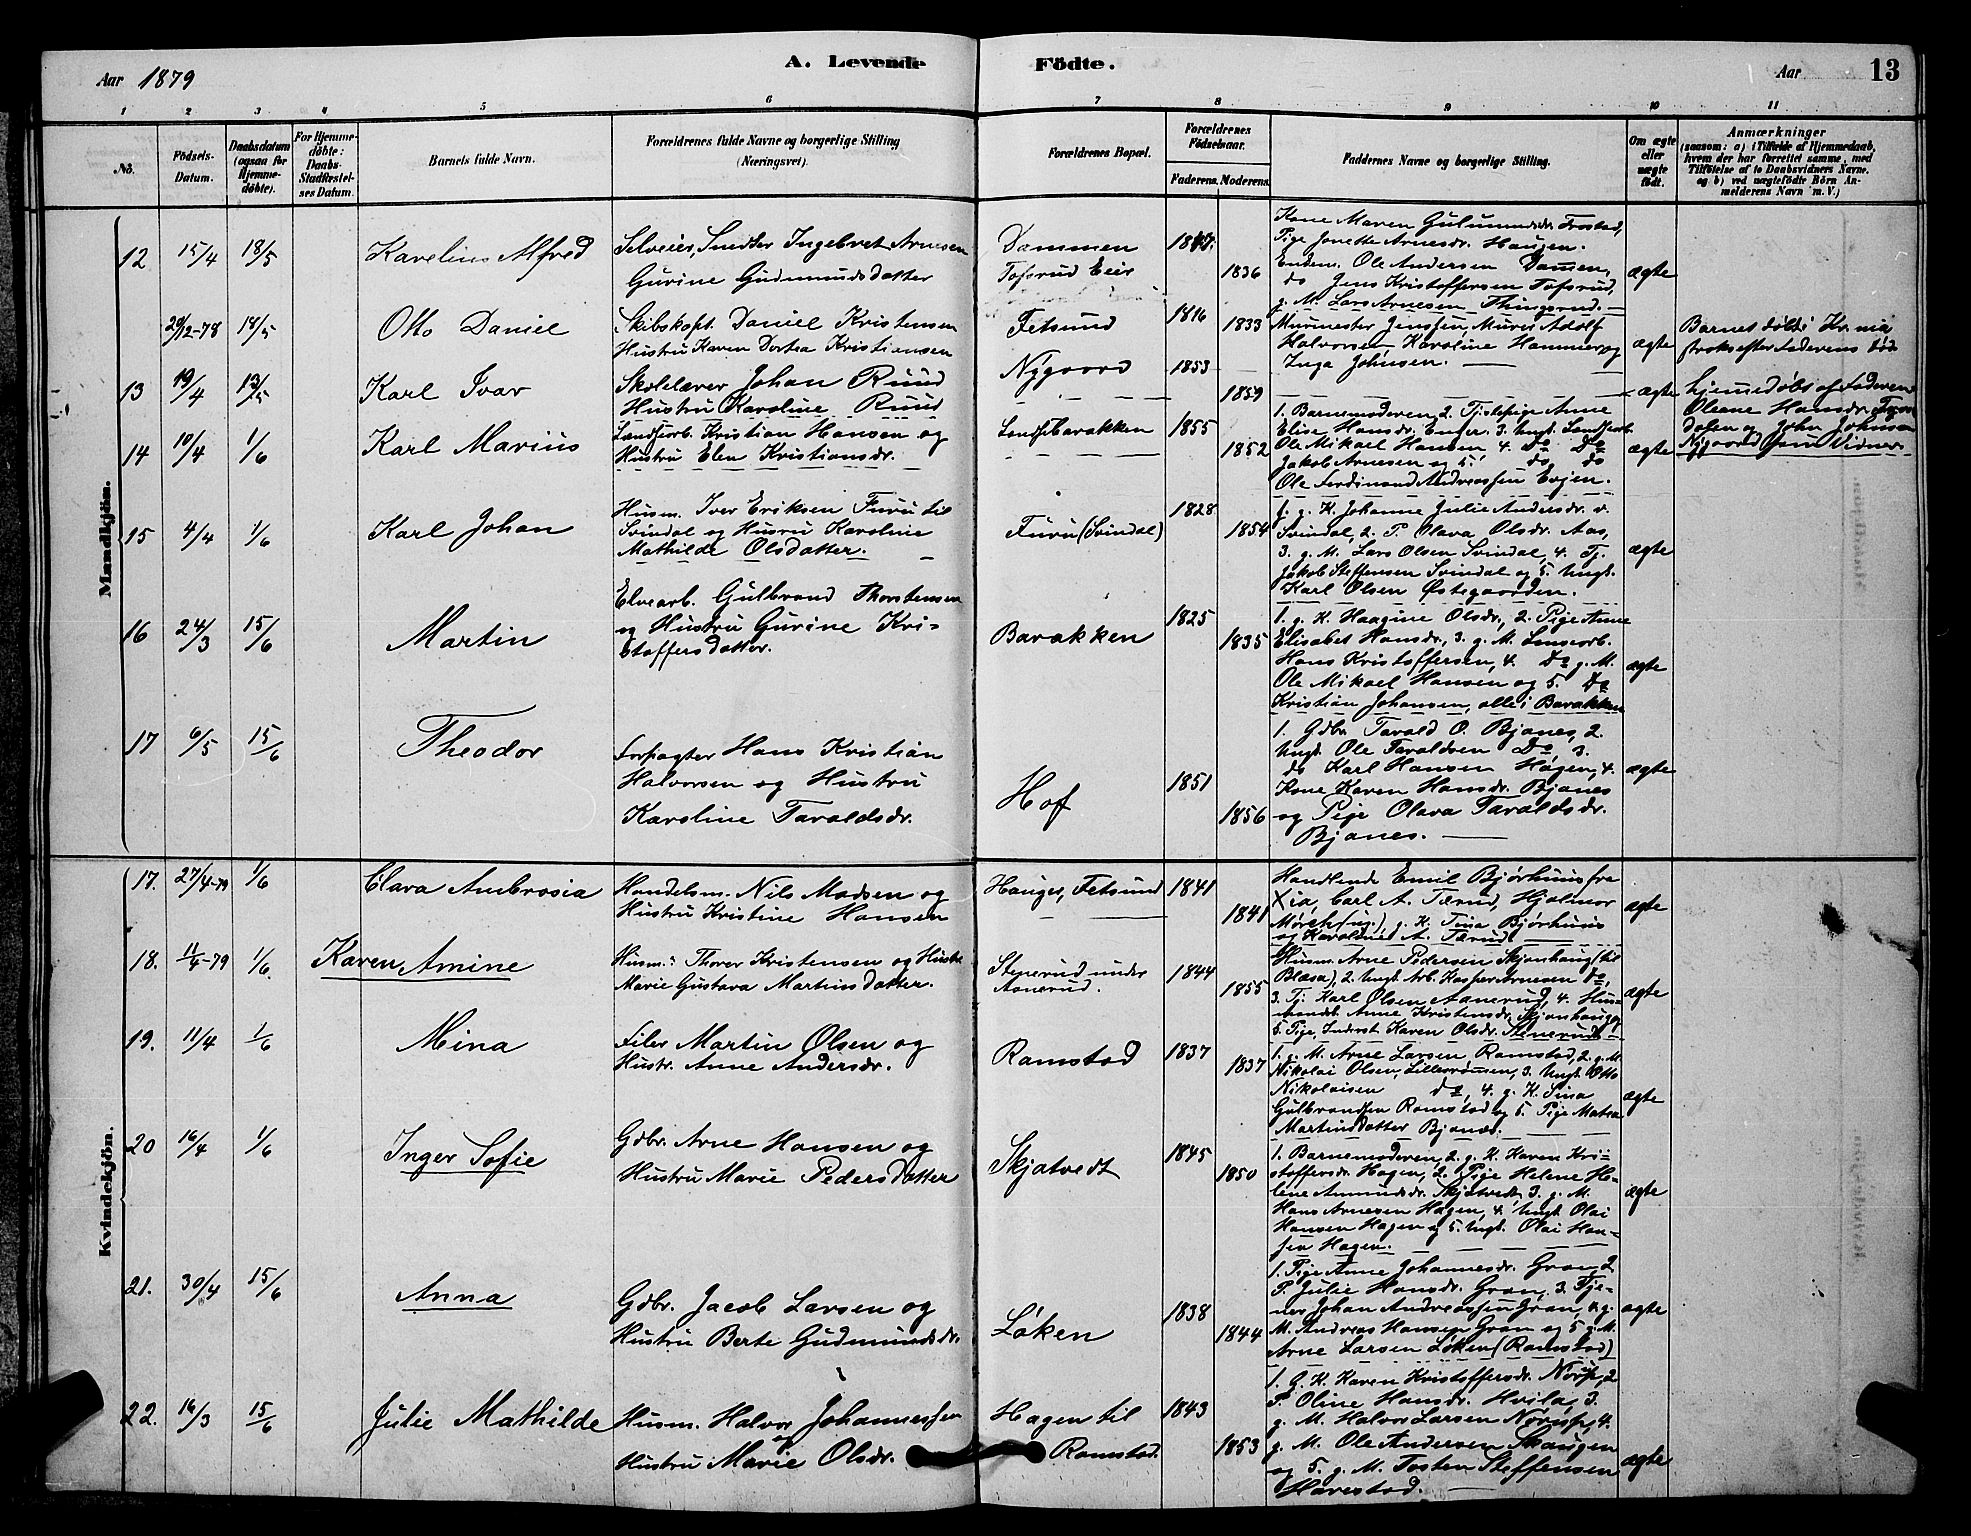 Aar 1879
A. Levende Födte.
Aar 13
1 2 3 4 5 6 7 8 9 10 11
No.
Födsels-Datum.
Daabsdatum (ogsaa for Hjemmedöbte).
For Hjemmedöbte: Daabs-Stadfæstelses Datum.
Barnets fulde Navn.
Forældrenes fulde Navne og borgerlige Stilling (Næringsvei).
Forældrenes Bopæl.
Forældrenes Födselsaar.
Faderens. Moderens.
Faddernes Navne og borgerlige Stilling.
Om ægte eller uægte födt.
Anmærkninger
(saasom: a) i Tilfælde af Hjemmedaab, hvem der har forrettet samme, med Tilföielse af to Daabsvidners Navne, og b) ved uægtefödte Börn Anmelderens Navn m. V.)
Mandkjön.
12 15/4 18/5 Karelius Alfred
Selveier, Snedker Ingebret Arnesen
Gurine Gudmundsdatter
Dammen
Tofsrud Eie
1847. 1836
Kone Maren Gulumundsdr. Frostad,
Pige Janette Arnesdr. Haugen.
Endem. Ole Andersen Damen,
do Jens Kristoffersen Tofsrud,
g. M. Lars Arnesen Thingsrud.
ægte
29/12-78 18/5 Otto Daniel
Skibskapt. Daniel Kristensen
Hustru Karen Dortea Kristiansen
Fetsund
1816 1833
Murmester Jenssen, Murer Adolf
Halvorsen Karoline Hammer og
Inga Johnsen.
ægte
Barnet døbt i Kr.nia
straks efter Faderens Død
13 19/4 13/5 Karl Ivar
Skolelærer Johan Ruud
Hustru Karoline Ruud
Nygaard
1853 1859
ægte
hjemmedøbt af Faderen
Oleane Hansdr.
John Johnsen
Nygaard som Vidner
14 10/4 1/6 Karl Marius
Landsarb. Kristian Hansen og
Hustru Elen Kristiansdr.
Lensebarakken
1855 1852
1. Barnemoderen, 2. Tjstepige Anne
Elise Hansdr. Enger. 3. Ungk. Landsarb.
Ole Mikael Hansen, 4. Do Do
Jakob Arnesen og 5. do do
Ole Ferdinand Andreassen Evjen.
ægte
15 4/4 1/6 Karl Johan
Husm. Iver Eriksen Furu til
Svindal og Hustru Karoline
Mathilde Olsdatter.
Furu (Svindal)
1828 1854
1. g. K. Johanne Julie Andersdr. v.
Svindal, 2. P. Olava Olsdr. Aas,
3. g. M. Lars Olsen Svindal, 4. Tj.
Jakob Steffensen Svindal og 5. Ungk.
Karl Olsen Østegaarden.
ægte
16 24/3 15/6 Martin
Elvearb. Gulbrand Thorstensen
og Hustru Gurine Kri-
stoffersdatter.
Barakken
1825 1835
1. g. K. Haagine Olsdr., 2. Pige Anne
Elisabet Hansdr., 3. g. M. Lensearb.
Hans Kristoffersen, 4. Do g. M.
Ole Mikael Hansen og 5. Do
Kristian Johansen, alle i Barakken
ægte
17 6/5 15/6 Theodor
Forpagter Hans Kristian
Halvorsen og Hustru
Karoline Taraldsdr.
Hof
1851 1856
1. Gdbr. Tarald O. Bjanes, 2.
Ungk. Ole Taraldsen Do 3.
do Karl Hansen Høgen, 4.
Kone Karen Hansdr. Bjanes
og Pige Olava Taraldsdr.
Bjanes.
ægte
Kvindekjön.
17. 27/4-79 1/6 Clara Ambrosia
Handelsm. Nils Madsen og
Hustru Kristine Hansen
Hauger, Fetsund
1841 1841
Handlende Emil Bjørhuus fra
Xia, Carl A. Tærud, Hjalmar
Mørch (ug.), g. K. Tina Bjørhuus
og Karoline A. Tærud.
ægte
18. 11/4-79 1/6. Karen Amine
Husm. Thorer Kristensen og Hustru
Marie Gustava Martinsdatter.
Stenerud under
Aanerud.
1844 1855
Husm. Arne Pedersen Skjønhaug til
Blæsa), 2. Ungk. Arb. Kasper Arnesen Do,
3. Tj. Karl Olsen Aanerud, 4. Hus-
mandsk. Anne Kristensdr. Skjønhaug og
5. Pige, Inderst Karen Olsdr. Stenerud.
ægte
19. 11/4 1/6 Mina
Filer Martin Olsen og
Hustr. Anne Andersdr.
Ramstad
1837 1837
1. g. M. Arne Larsen Ramstad, 2. g. M.
Nikolai Olsen, Lillerømsen, 3. Ungk. Otto
Nikolaisen do, 4. g. K. Sina
Gulbrandsen Ramstad og 5. Pige Matea
Martinsdatter Bjanes.
ægte
20 16/4 1/6 Inger Sofie
Gdbr. Arne Hansen og
Hustru Marie Pedersdatter
Skjatvedt
1845 1850
1. Barnemoderen, 2. g. K. Karen Kri-
stoffersdr. Hagen, 2. Pige Helene He-
lene Amundsdr. Skjatvedt, 3. g. M.
Hans Arnesen Hagen, 4. Ungk. Olai
Hansen Hagen og 5. Ungk. Olai Han-
sen Hagen.
ægte
21. 30/4 15/6 Anna
Gdbr. Jacob Larsen og
Hustru Berte Gudmundsdr.
Løken
1838 1844
1. Pige Anne Johannesdr. Gran 2.
P. Julie Hansdr. Gran, 3. Tje-
ner Johan Andreassen Gran, 4. g.
M. Andreas Hansen Gran og 5. g. M.
Arne Larsen Løken (Ramstad)
ægte
22. 16/3 15/6 Julie Mathilde
Husm. Halvor Johannessen
og
Hustru Marie Olsdr.
Hagen til
Ramstad.
1843 1853
1. G. K. Karen Kristoffersdr. Nørup, 2
P. Oline Hansdr. Hvila, 3.
g. M. Halvor Larsen Nørup, 4.
g. M. Ole Andersen Skaugen
og 5. g. M. Tosten Steffensen
Harestad.
ægte